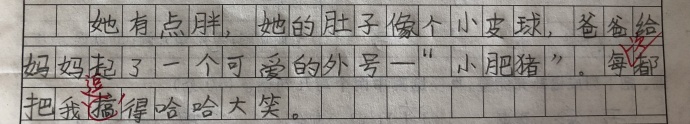 她有点胖，她的肚子像个小皮球，爸爸给
妈妈起了一个可爱的外号—“小肥猪”。每次都
逗
把我搞得哈哈大笑。